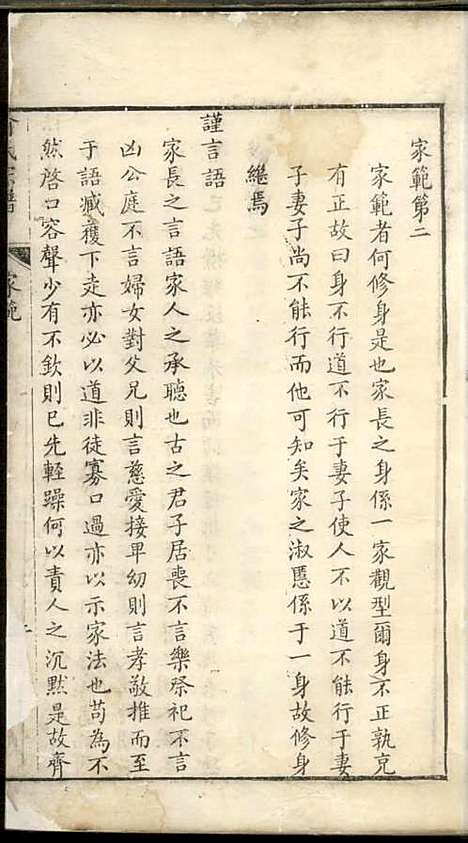 家範第二
家範者何修身是也家長之身係一家觀型爾身不正孰克
有正故曰身不行道不行于妻子使人不以道不能行于妻
子妻子尚不能行而他可知矣家之淑慝係于一身故修身
繼焉
謹言語
家長之言語家人之承聽也古之君子居喪不言樂祭祀不言
凶公庭不言婦女對父兄則言慈愛接卑幼則言孝敬推而至
于語臧獲下走亦必以道非徒寡口過亦以示家法也苟為不
然啓口容聲少有不欽則已先輕躁何以責人之沉默是故齊
氏宗譜
家範